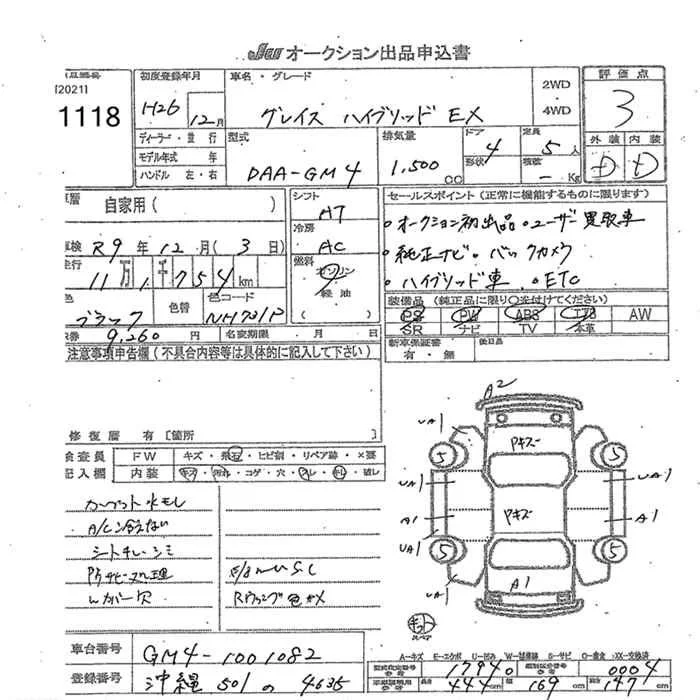 JU オークション出品申込書
[2021]
1118
初度登録年月
H26 12月
車名・グレード
グレイス ハイブリッド EX
2WD
4WD
評価点
3
外装 内装
D D
ディーラー・並行
モデル年式 年
ハンドル 左・右
型式
DAA-GM4
排気量
1,500 CC
ドア 形状
4
定員 5 人
積載 - Kg
車歴
自家用( )
シフト
AT
冷房
AC
燃料
ガソリン
軽油
セールスポイント(正常に機能するものに限ります)
・オークション初出品 ・ユーザー買取車
・純正ナビ ・バックカメラ
・ハイブリッド車 ・ETC
車検 R9年12月(3日)
走行 11万1千754km
色 ブラック 色替 色コード NH731P
券 9,260円 名変期限 月 日
装備品(純正品に限り○を付けてください)
PS PW ABS エアB AW
SR ナビ TV 本革
新車保証書 有・無
後日品
注意事項申告欄(不具合内容等は具体的に記入して下さい)
修復歴 有[箇所 ]
検査員 FW キズ・飛石・ヒビ割・リペア跡・×要
記入欄 内装
カーペット水モレ
A/C冷えない
シートキレ・シミ
E/g
A2
UA1
Pキズ
5 5
UA1 UA1
A1 Pキズ A1
UA1
5 5
A1
キット
スペア
A=キズ E=エクボ U=凹み S=サビ XX=交換済
車台番号 GM4-1001082
登録番号 沖縄 501 の 4635
型式指定番号 17940 類別区分番号 0004
長さ 444cm 幅 169cm 高さ 147cm